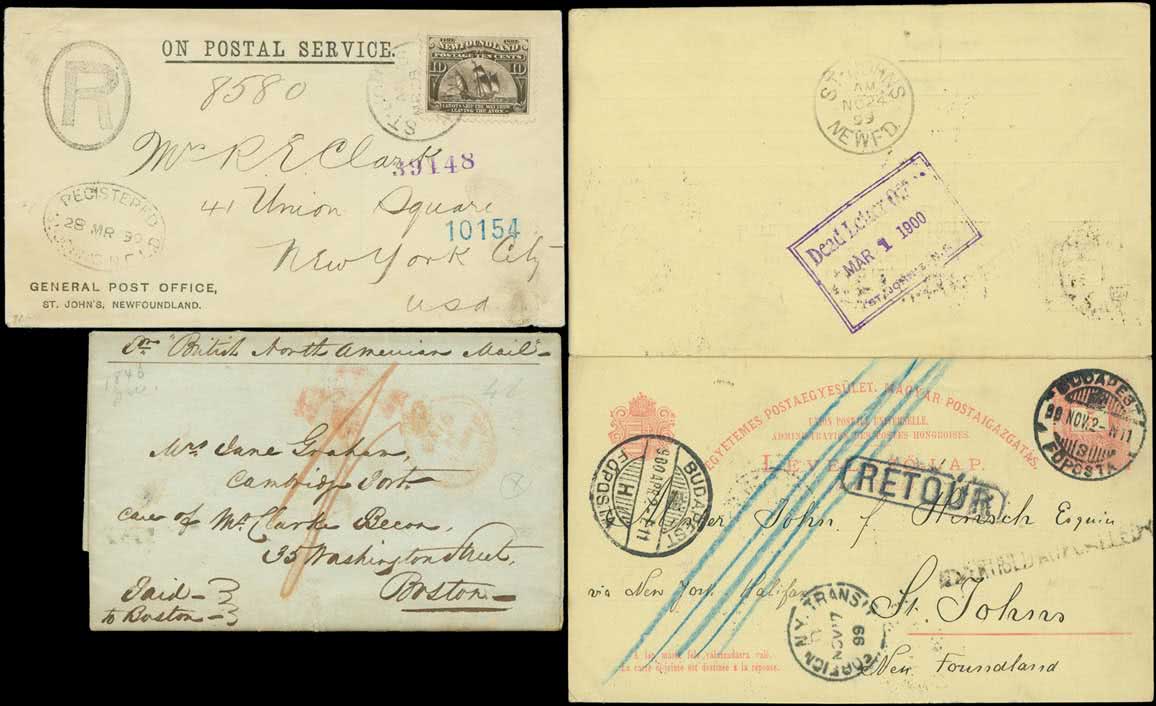 ON POSTAL SERVICE.
R
8580
1897 1897
NEWFOUNDLAND
POSTAGE TEN CENTS
10 10
LEAVING THE AVON
Mr R E Clark
39148
41 Union Square
10154
New York City
USA
REGISTERED
28 MR 99
GENERAL POST OFFICE,
ST. JOHN'S, NEWFOUNDLAND.
Pr British North American Mail
1846
Mrs Jane Graham,
Cambridge Port.
care of Mr Clarke Becon,
35 Washington Street,
Boston
Paid
to Boston
ST. JOHN'S
AM
NO 24
99
NEWF'D.
Dead Letter Off
MAR 1 1900
EGYETEMES POSTAEGYESÜLET. MAGYAR POSTAIGAZGATÁS.
UNION POSTALE UNIVERSELLE.
ADMINISTRATION DES POSTES HONGROISES.
BUDAPEST
99 NOV. 2 - N11
FŐPOSTA
BUDAPEST
FŐPOSTA
RETOUR
John f Hinsch Esquire
via New York Halifax
St. Johns
New Foundland
FOREIGN N.Y. TRANSIT
NOV 17
99
La carte ci-jointe est destinée à la réponse.